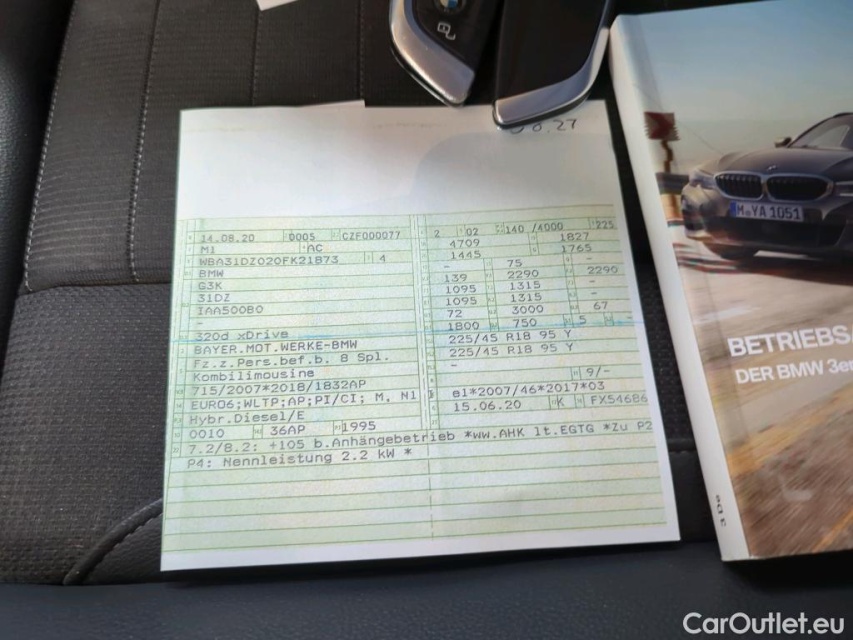 8.27
14.08.20 0005 CZF000077 2 02 140 /4000 225
M1 AC 4709 1827
WBA31DZ020FK21873 4 1445 1765
BMW - 75 -
G3K 139 2290 2290
31DZ 1095 1315 -
IAA500B0 1095 1315 -
- 72 3000 67
320d xDrive 1800 750 5 -
BAYER.MOT.WERKE-BMW 225/45 R18 95 Y
Fz.z.Pers.bef.b. 8 Spl. 225/45 R18 95 Y
Kombilimousine -
715/2007*2018/1832AP 9/-
EURO6;WLTP;AP;PI/CI; M, N1 e1*2007/46*2017*03
Hybr.Diesel/E 15.06.20 K FX54686
0010 36AP 1995
7.2/8.2: +105 b.Anhängebetrieb *ww.AHK lt.EGTG *Zu P2
P4: Nennleistung 2.2 kW *
M YA 1051
BETRIEBSA
DER BMW 3er
CarOutlet.eu